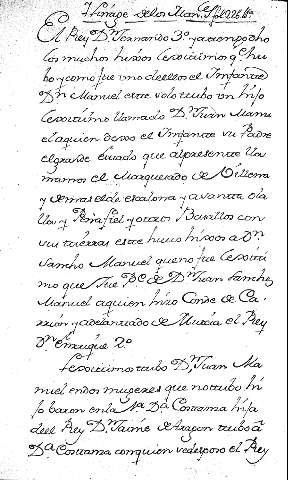 Linage de los Man.es fol. 226 b.ta
El Rey D.n Fernando 3º ya compocho
los muchos hixos lexitimos q.e hu
bo y como fue uno de ellos el Infante
D.n Manuel este solo tubo un hijo
lexitimo llamado D.n Juan Manu
el a quien dexo el Infante su Padre
el grande Estado que al presente lla
mamos el Marquesado de Villena
y otras el de escalona y
y Peñafiel y otros Basallos con
sus tierras este hubo hixos a D.n
Sancho Manuel que no fue lexiti
mo que fue P.e de D.n Juan Sanchez
Manuel a quien hizo Conde de Ca
rrion y adelantado de Murcia el Rey
D.n Enrrique 2º
Lexitimos tubo D.n Juan Ma
nuel en dos mugeres que no tubo hi
jo baron en la 1ª D.a Costanza hija
del Rey D.n Jaime de Aragon tubo a
D.a Costanza con quien se desposo el Rey